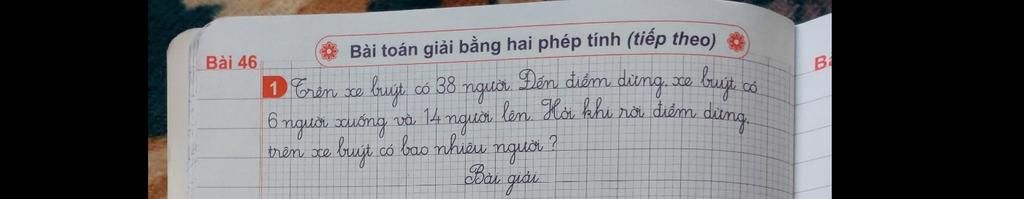 Bài 46
Bài toán giải bằng hai phép tính (tiếp theo)
1 Trên xe buýt có 38 người. Đến điểm dừng, xe buýt có
6 người xuống và 14 người lên. Hỏi khi rời điểm dừng,
trên xe buýt có bao nhiêu người?
Bài giải